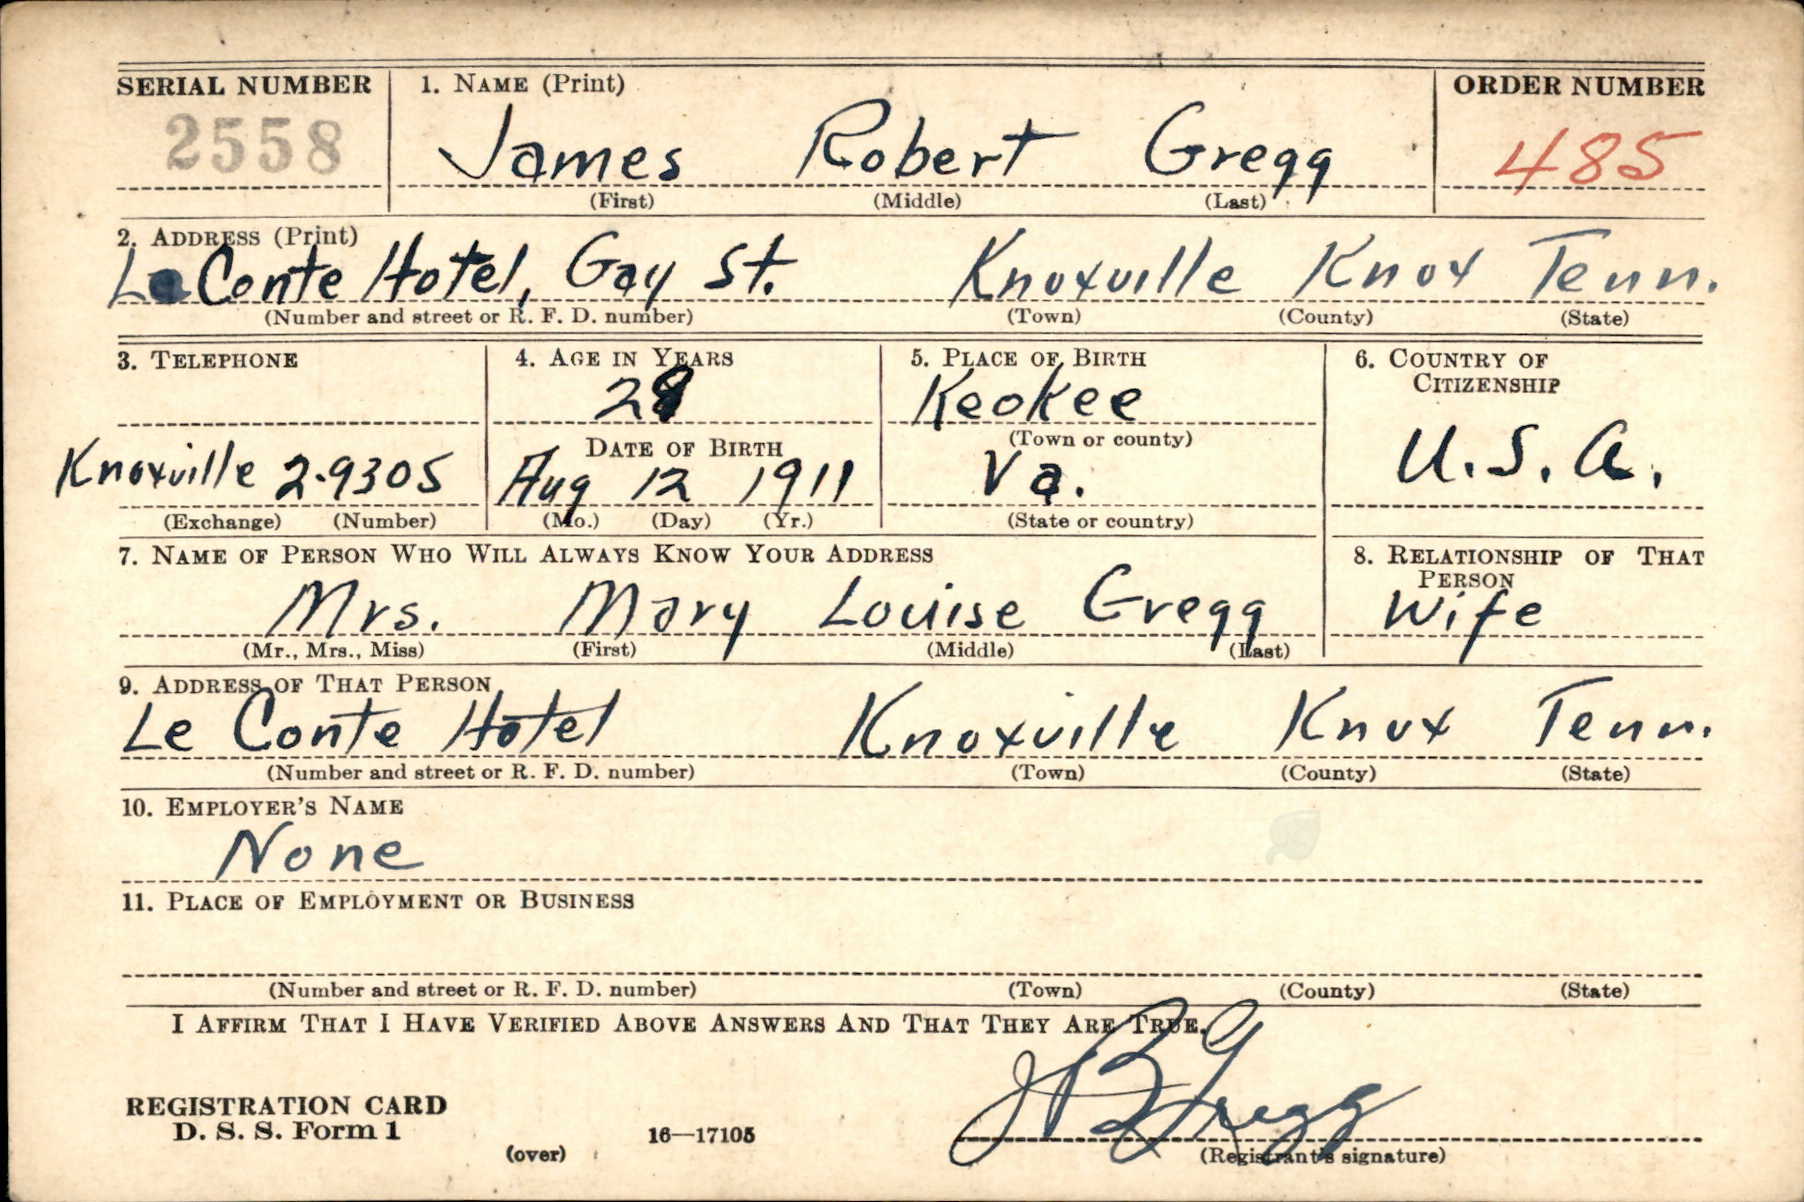 SERIAL NUMBER 1. NAME (Print) ORDER NUMBER
2558 James Robert Gregg 485
(First) (Middle) (Last)
2. ADDRESS (Print)
Le Conte Hotel, Gay St. Knoxville Knox Tenn.
(Number and street or R. F. D. number) (Town) (County) (State)
3. TELEPHONE 4. AGE IN YEARS 5. PLACE OF BIRTH 6. COUNTRY OF CITIZENSHIP
Keokee
DATE OF BIRTH (Town or county)
Knoxville 2-9305 Aug 12 1911 Va. U.S.A.
(Exchange) (Number) (Mo.) (Day) (Yr.) (State or country)
7. NAME OF PERSON WHO WILL ALWAYS KNOW YOUR ADDRESS 8. RELATIONSHIP OF THAT PERSON
Mrs. Mary Louise Gregg Wife
(Mr., Mrs., Miss) (First) (Middle) (Last)
9. ADDRESS OF THAT PERSON
Le Conte Hotel Knoxville Knox Tenn.
(Number and street or R. F. D. number) (Town) (County) (State)
10. EMPLOYER'S NAME
None
11. PLACE OF EMPLOYMENT OR BUSINESS
(Number and street or R. F. D. number) (Town) (County) (State)
I AFFIRM THAT I HAVE VERIFIED ABOVE ANSWERS AND THAT THEY ARE TRUE.
REGISTRATION CARD
D. S. S. Form 1
(over) 16—17105
J R Gregg
(Registrant's signature)